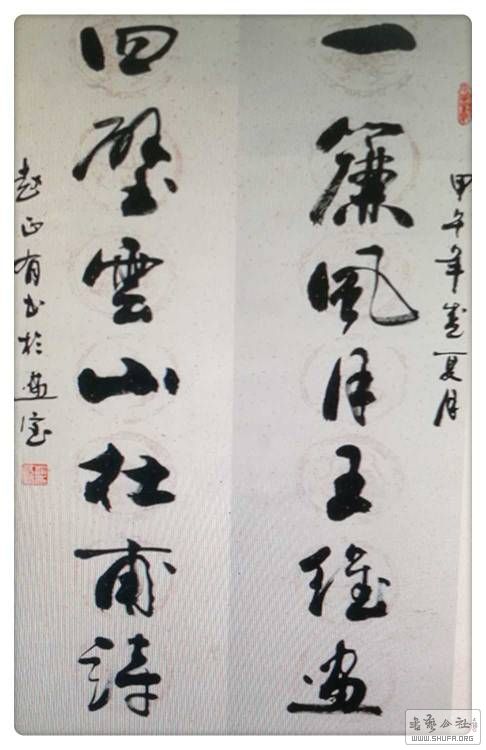 甲午年盛夏月
一簾風月王維畫
四壁雲山杜甫詩
趙正有书於
书艺公社
WWW.SHUFA.ORG